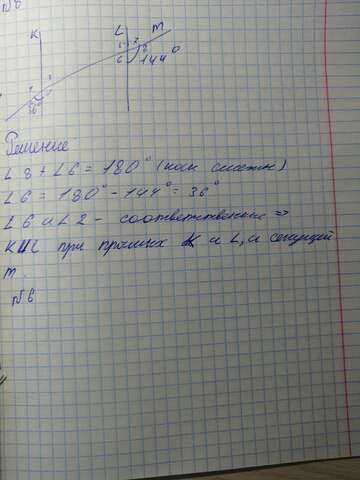 №6
K L m
144°
36°
Решение
∠8 + ∠6 = 180° (как смежн)
∠6 = 180° - 144° = 36°
∠6 и ∠2 - соответственные ⇒
K ॥ L при прямых K и L, и секущей
m.
№6